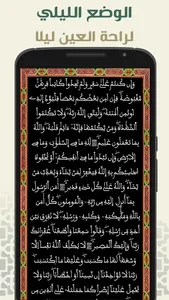 الوضع الليلي
لراحة العين ليلا
وإن كنتم على سفر ولم تجدوا كاتبا فرهن
مقبوضة فإن أمن بعضكم بعضا فليؤد الذي
اوتمن أمنته وليتق الله ربه ولا تكتموا
الشهدة ومن يكتمها فإنه ءاثم قلبه والله
بما تعملون عليم لله ما في السموت وما في
الارض وإن تبدوا ما في أنفسكم أو تخفوه يحاسبكم
به الله فيغفر لمن يشاء ويعذب من يشاء
والله على كل شيء قدير ءامن الرسول
بما أنزل إليه من ربه والمومنون كل ءامن
بالله وملئكته وكتبه ورسله لا نفرق
بين أحد من رسله وقالوا سمعنا وأطعنا غفرانك
ربنا وإليك المصير لا يكلف الله نفسا
إلا وسعها لها ما كسبت وعليها ما اكتسبت
ربنا لا تواخذنا إن نسينا أو اخطأنا ربنا